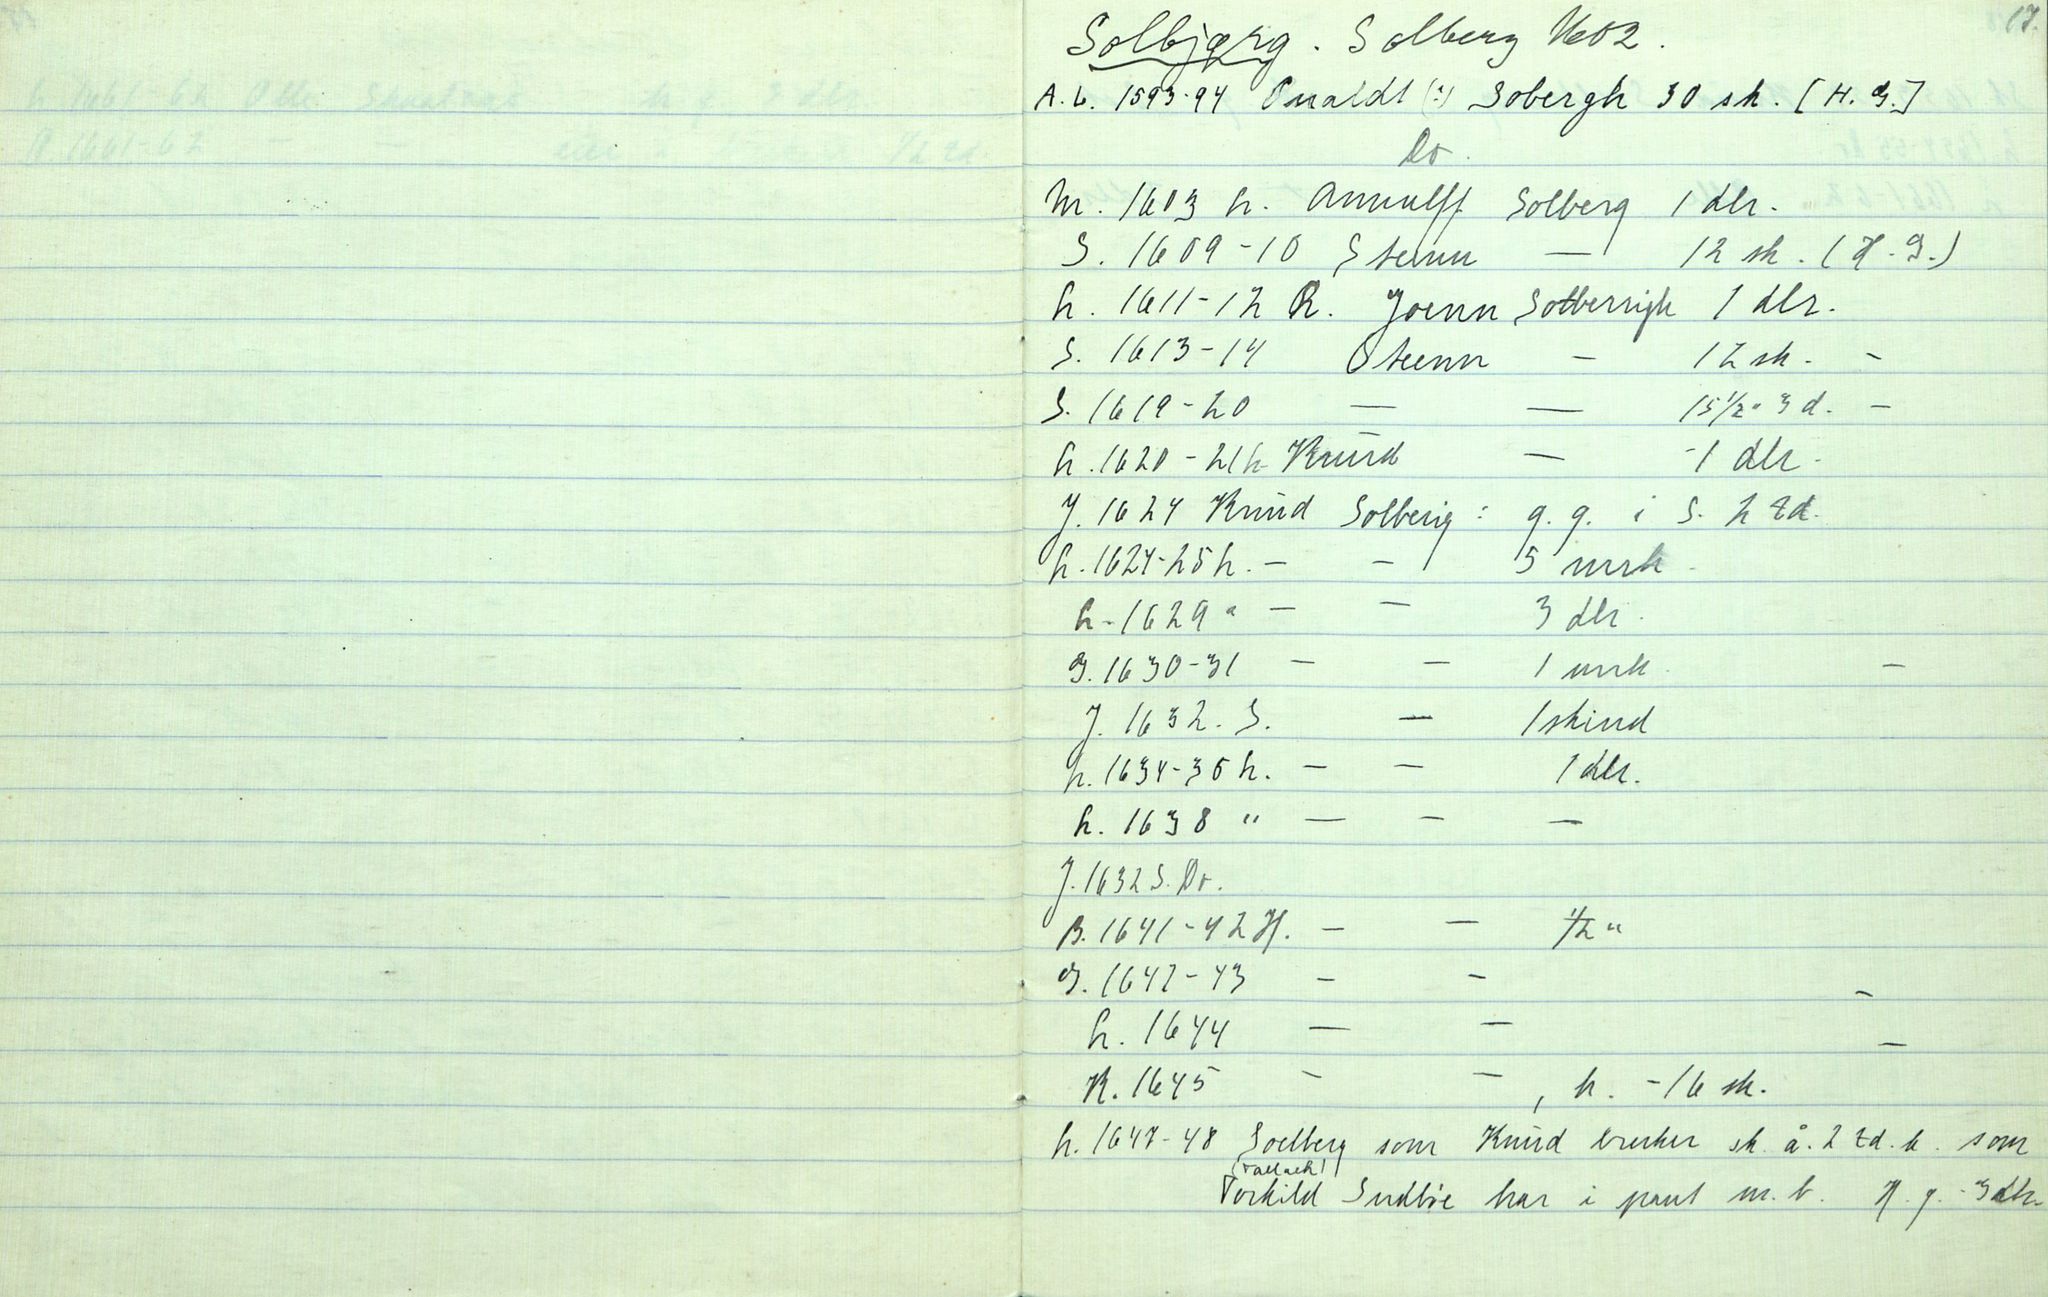 17.
Solbjørg. Solberg 1602.
A.b. 1593-94 Onaldt (?) Sobergh 30 sk. [H. G.]
Do.
M. 1603 h. Annulff Solberg 1 dlr.
S. 1609-10 Stenn — 12 sk. (H. G.)
L. 1611-12 R. Joenn Solberrigh 1 dlr.
S. 1613-14 Steenn — 12 sk. —
S. 1619-20 — — 15 1/2 " 3 d. —
L. 1620-21 h. Knud — 1 dlr.
J. 1624 Knud Solberig: g. g. i S. 2 td.
L. 1624-25 h. — — 5 mrk.
L. 1629 " — — 3 dlr.
G. 1630-31 — — 1 mrk. —
J. 1632. S. — 1 skind
L. 1634-35 h. — — 1 dlr.
L. 1638 " — — —
J. 1632 S. Do.
B. 1641-42 H. — — 1/2 "
G. 1642-43 — — —
L. 1644 — — —
K. 1645 — —, h. - 16 sk.
L. 1647-48 Soelberg som Knud bruker sk. å. 2 td. k. som
(Tallach)
Torkild Sudbøe har i pant m. b. H. g. - 3 dlr.